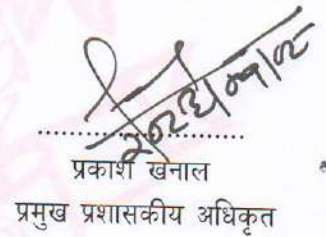 ........................
प्रकाश खनाल
प्रमुख प्रशासकीय अधिकृत